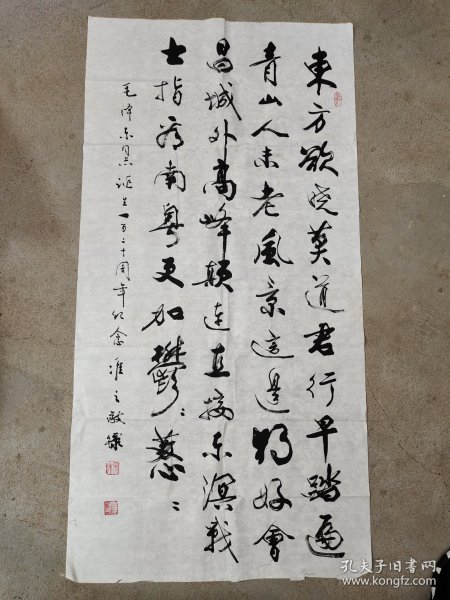 東方欲晓莫道君行早踏遍
青山人未老風景這邊独好會
昌城外高峰颠连直接东溟戰
士指看南粤更加鬱〻蔥〻
毛泽东同志诞生一百二十周年纪念 之敬錄
孔夫子旧书网
www.kongfz.com